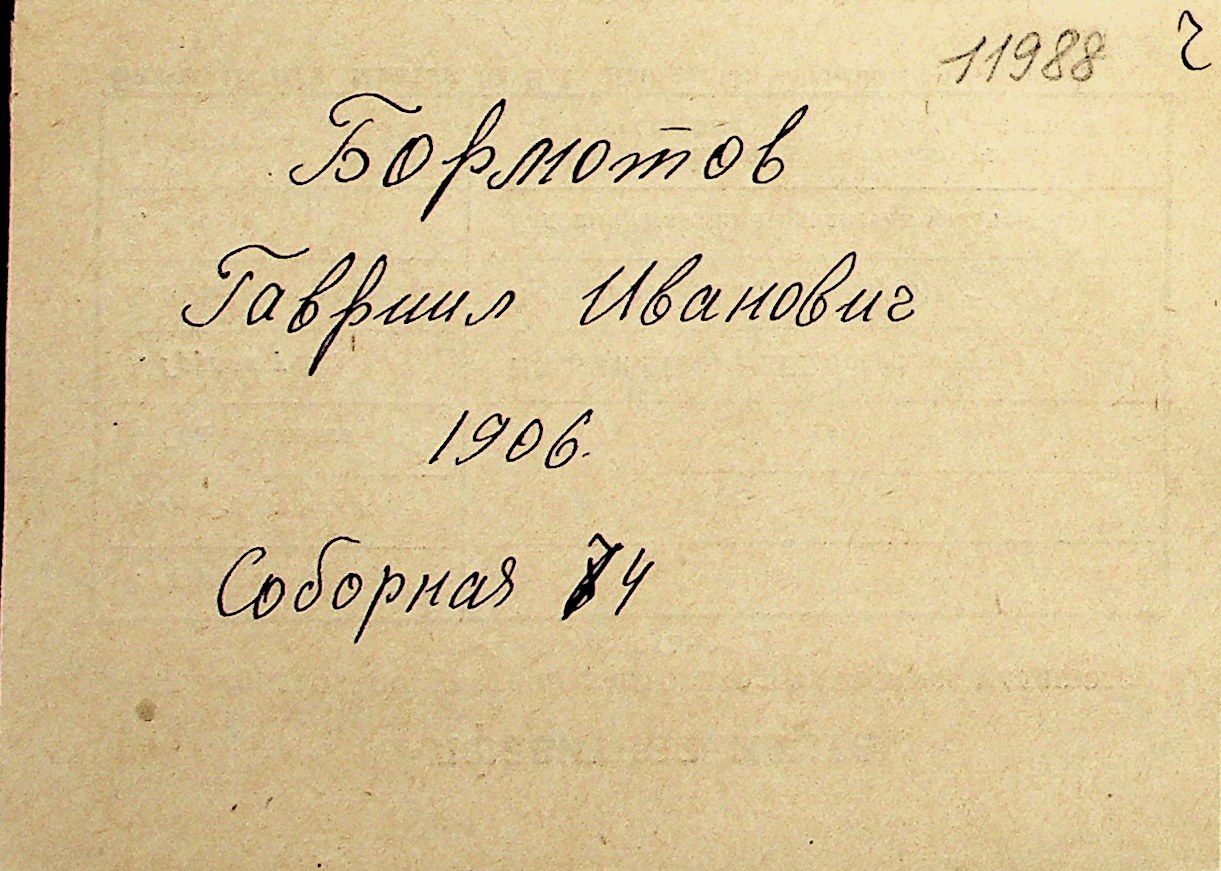 11988 г
Бормотов
Гавриил Иванович
1906.
Соборная 74